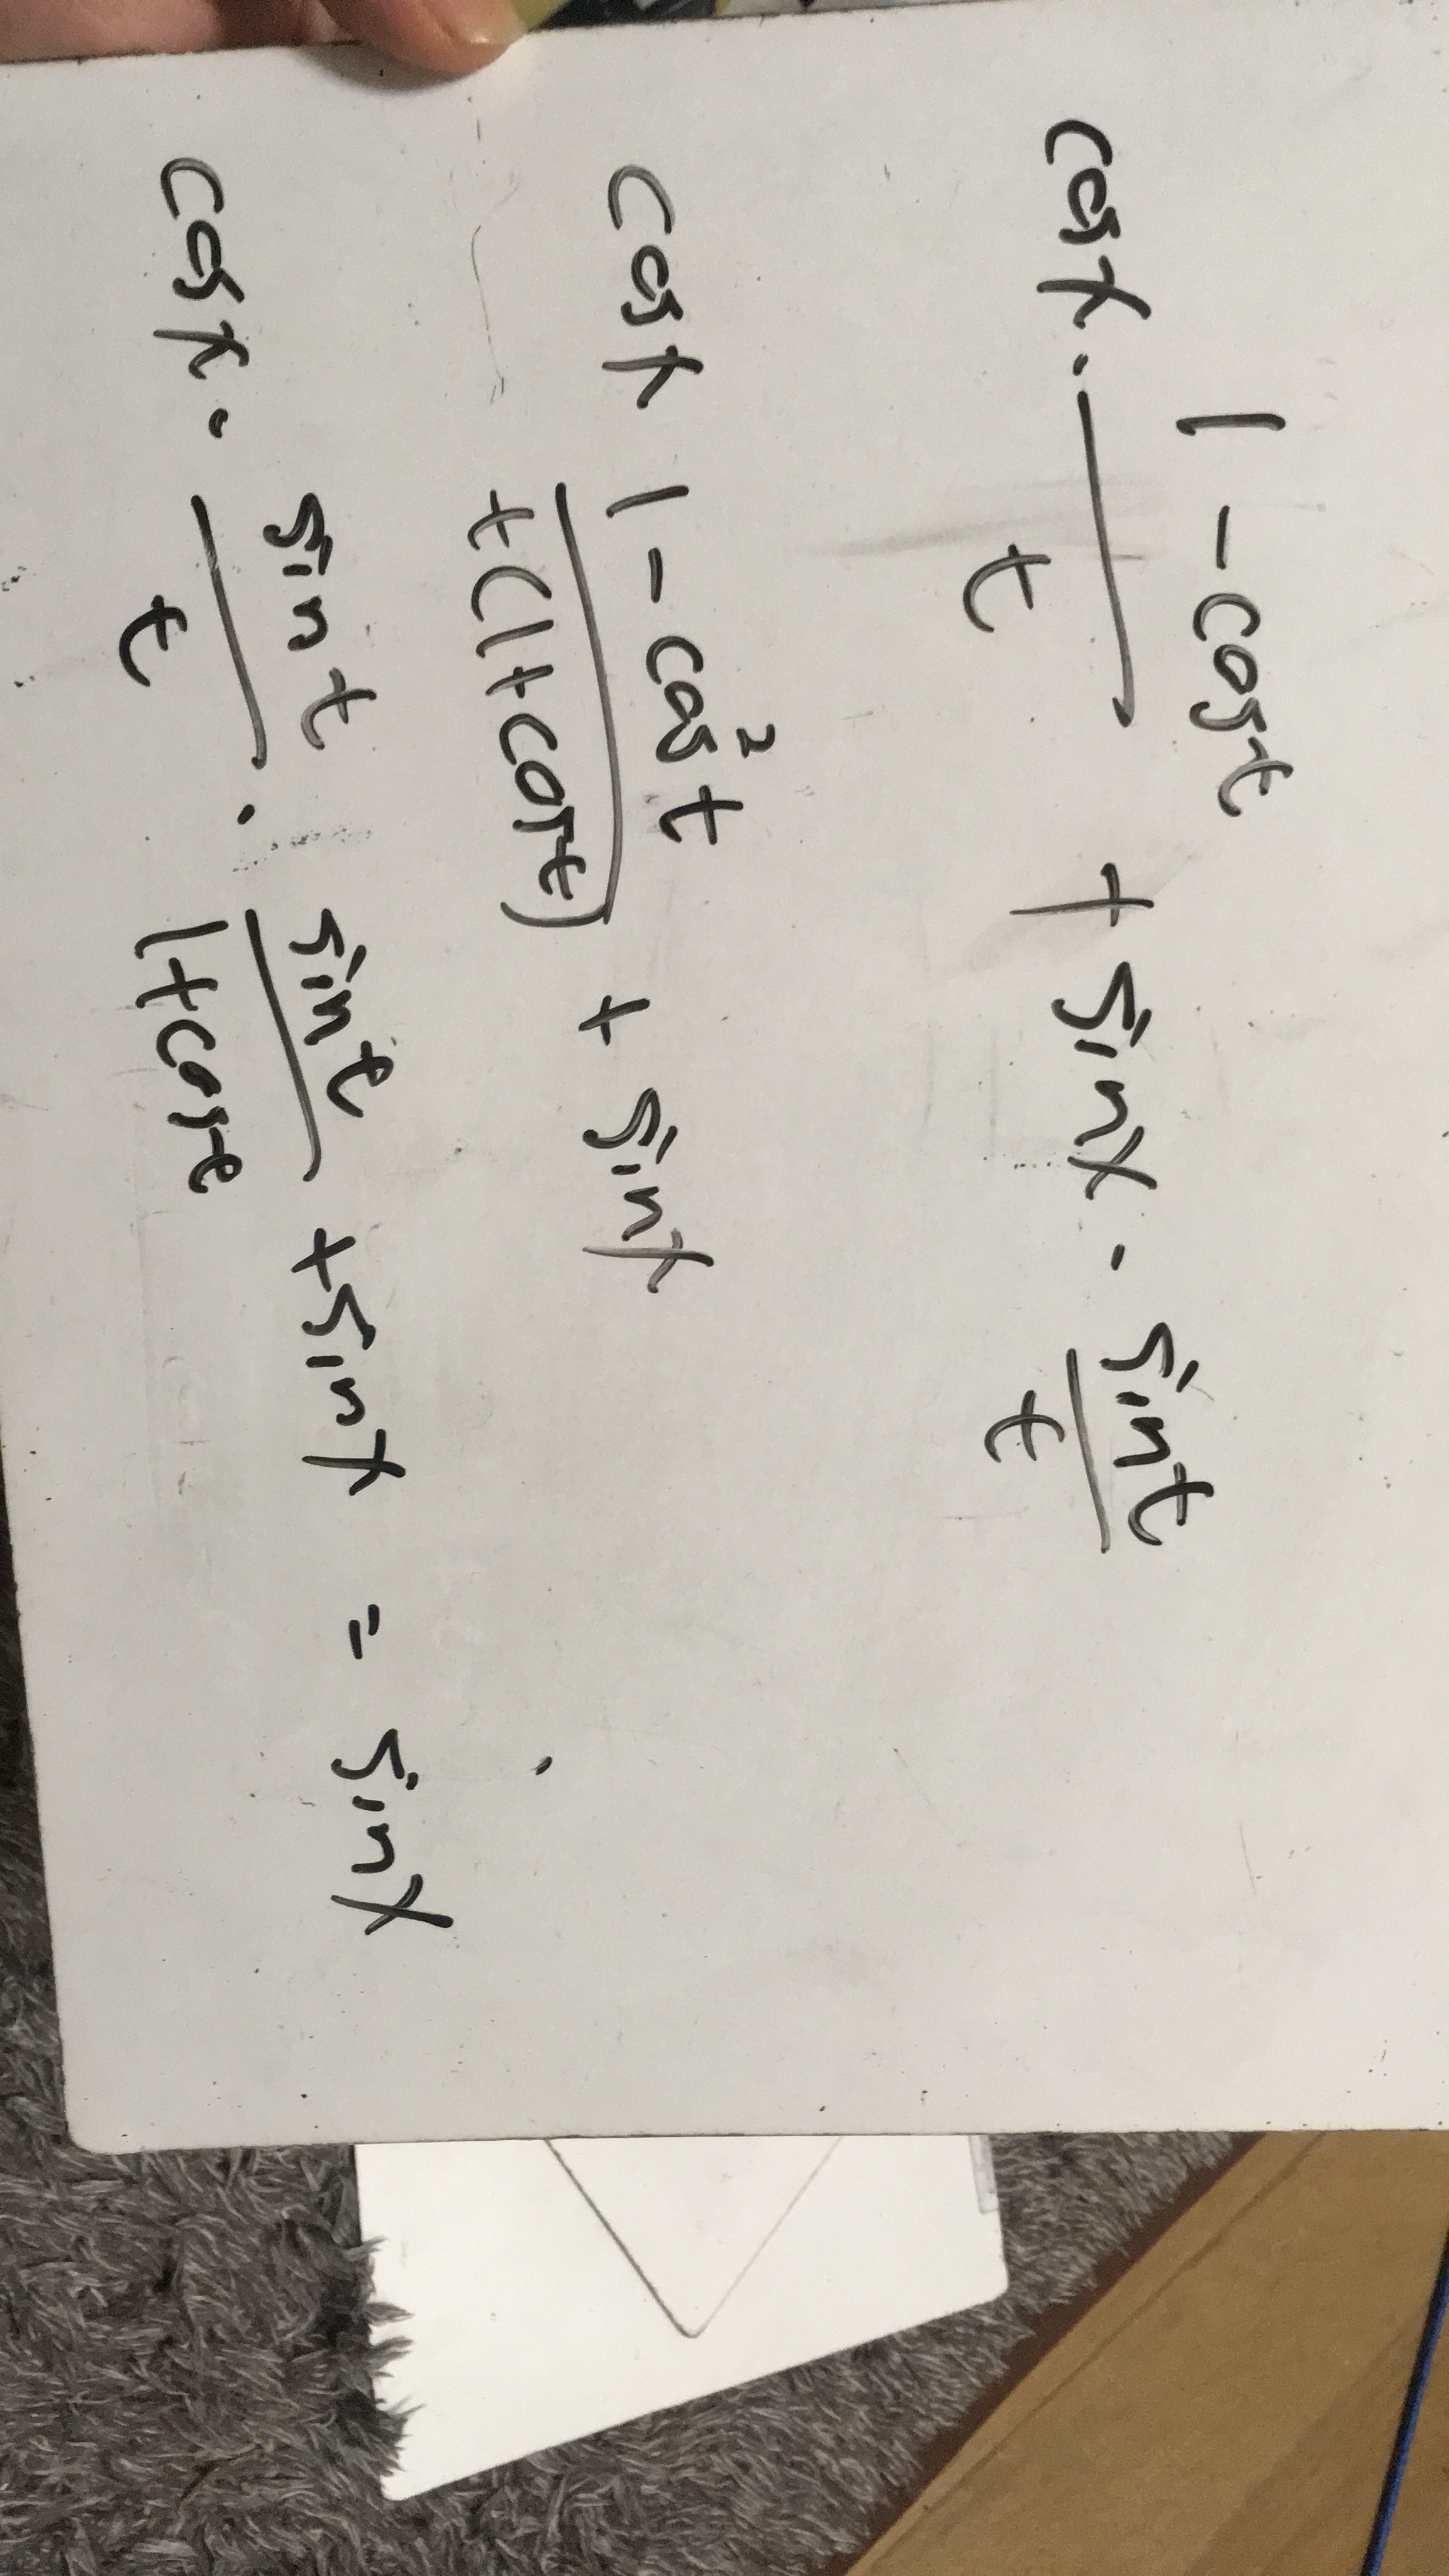 cosx · (1 - cost)/t + sinx · sint/t
cosx (1 - cos²t)/(t(1+cost)) + sinx
cosx · sint/t · sint/(1+cost) + sinx = sinx